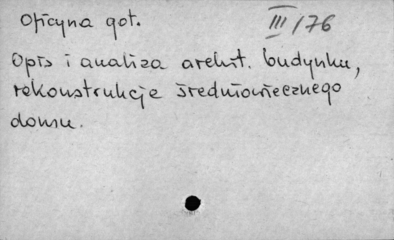 Oficyna got. III/76
Opis i analiza archit. budynku,
rekonstrukcje średniowiecznego
domu.